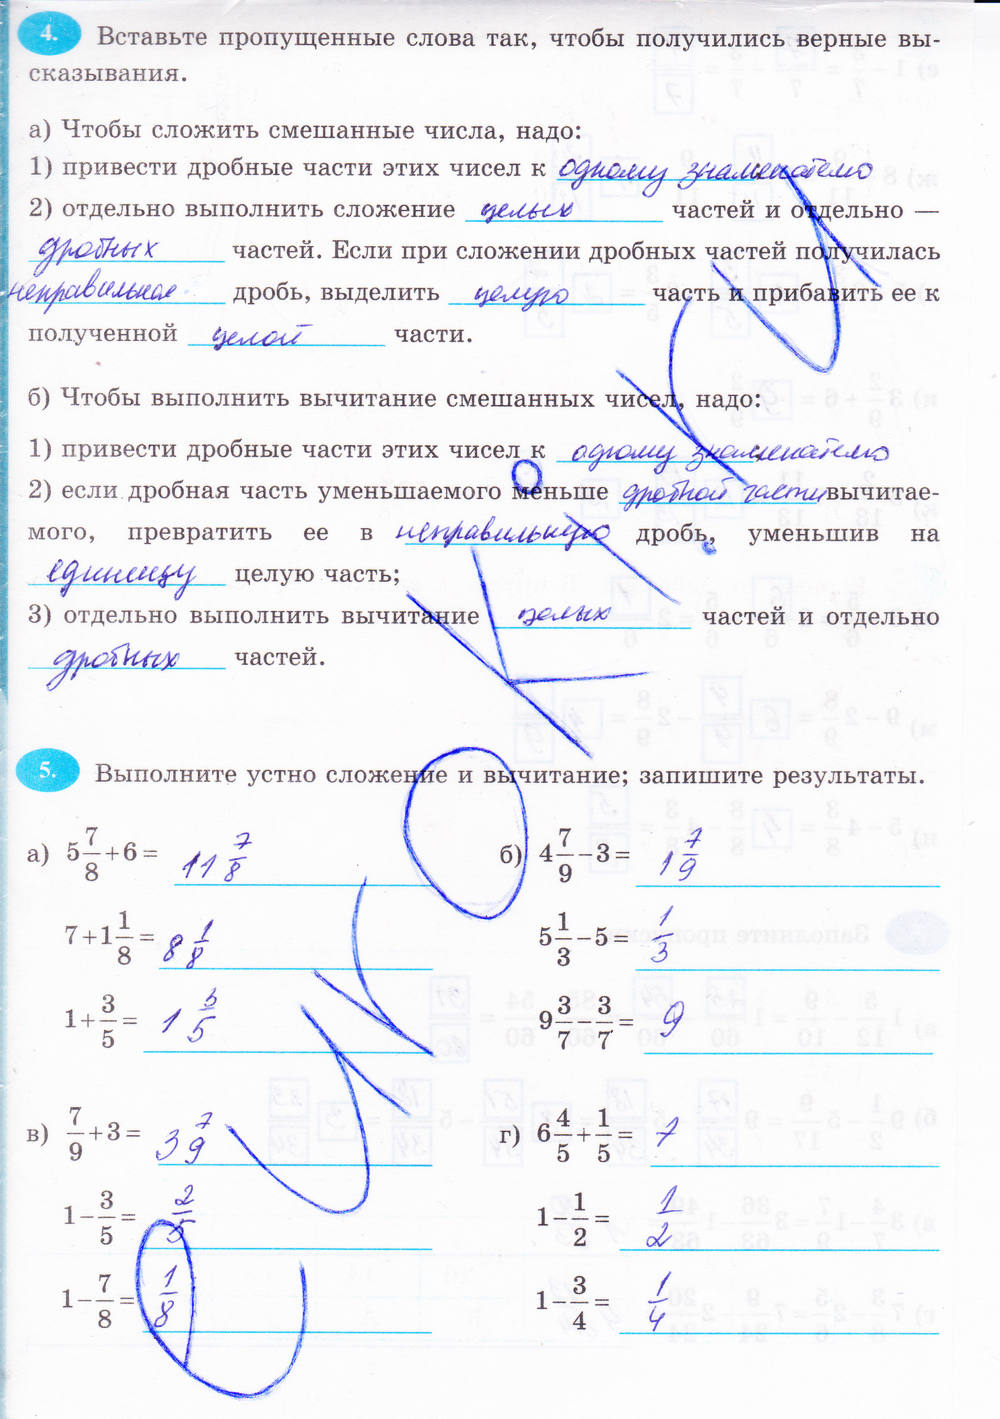 4. Вставьте пропущенные слова так, чтобы получились верные вы-
сказывания.
а) Чтобы сложить смешанные числа, надо:
1) привести дробные части этих чисел к одному знаменателю
2) отдельно выполнить сложение целых частей и отдельно —
дробных частей. Если при сложении дробных частей получилась
неправильная дробь, выделить целую часть и прибавить ее к
полученной целой части.
б) Чтобы выполнить вычитание смешанных чисел, надо:
1) привести дробные части этих чисел к одному знаменателю
2) если дробная часть уменьшаемого меньше дробной части вычитае-
мого, превратить ее в неправильную дробь, уменьшив на
единицу целую часть;
3) отдельно выполнить вычитание целых частей и отдельно
дробных частей.
5. Выполните устно сложение и вычитание; запишите результаты.
а) 5 7/8 + 6 = 11 7/8 б) 4 7/9 − 3 = 1 7/9
7 + 1 1/8 = 8 1/8 5 1/3 − 5 = 1/3
1 + 3/5 = 1 3/5 9 3/7 − 3/7 = 9
в) 7/9 + 3 = 3 7/9 г) 6 4/5 + 1/5 = 7
1 − 3/5 = 2/5 1 − 1/2 = 1/2
1 − 7/8 = 1/8 1 − 3/4 = 1/4